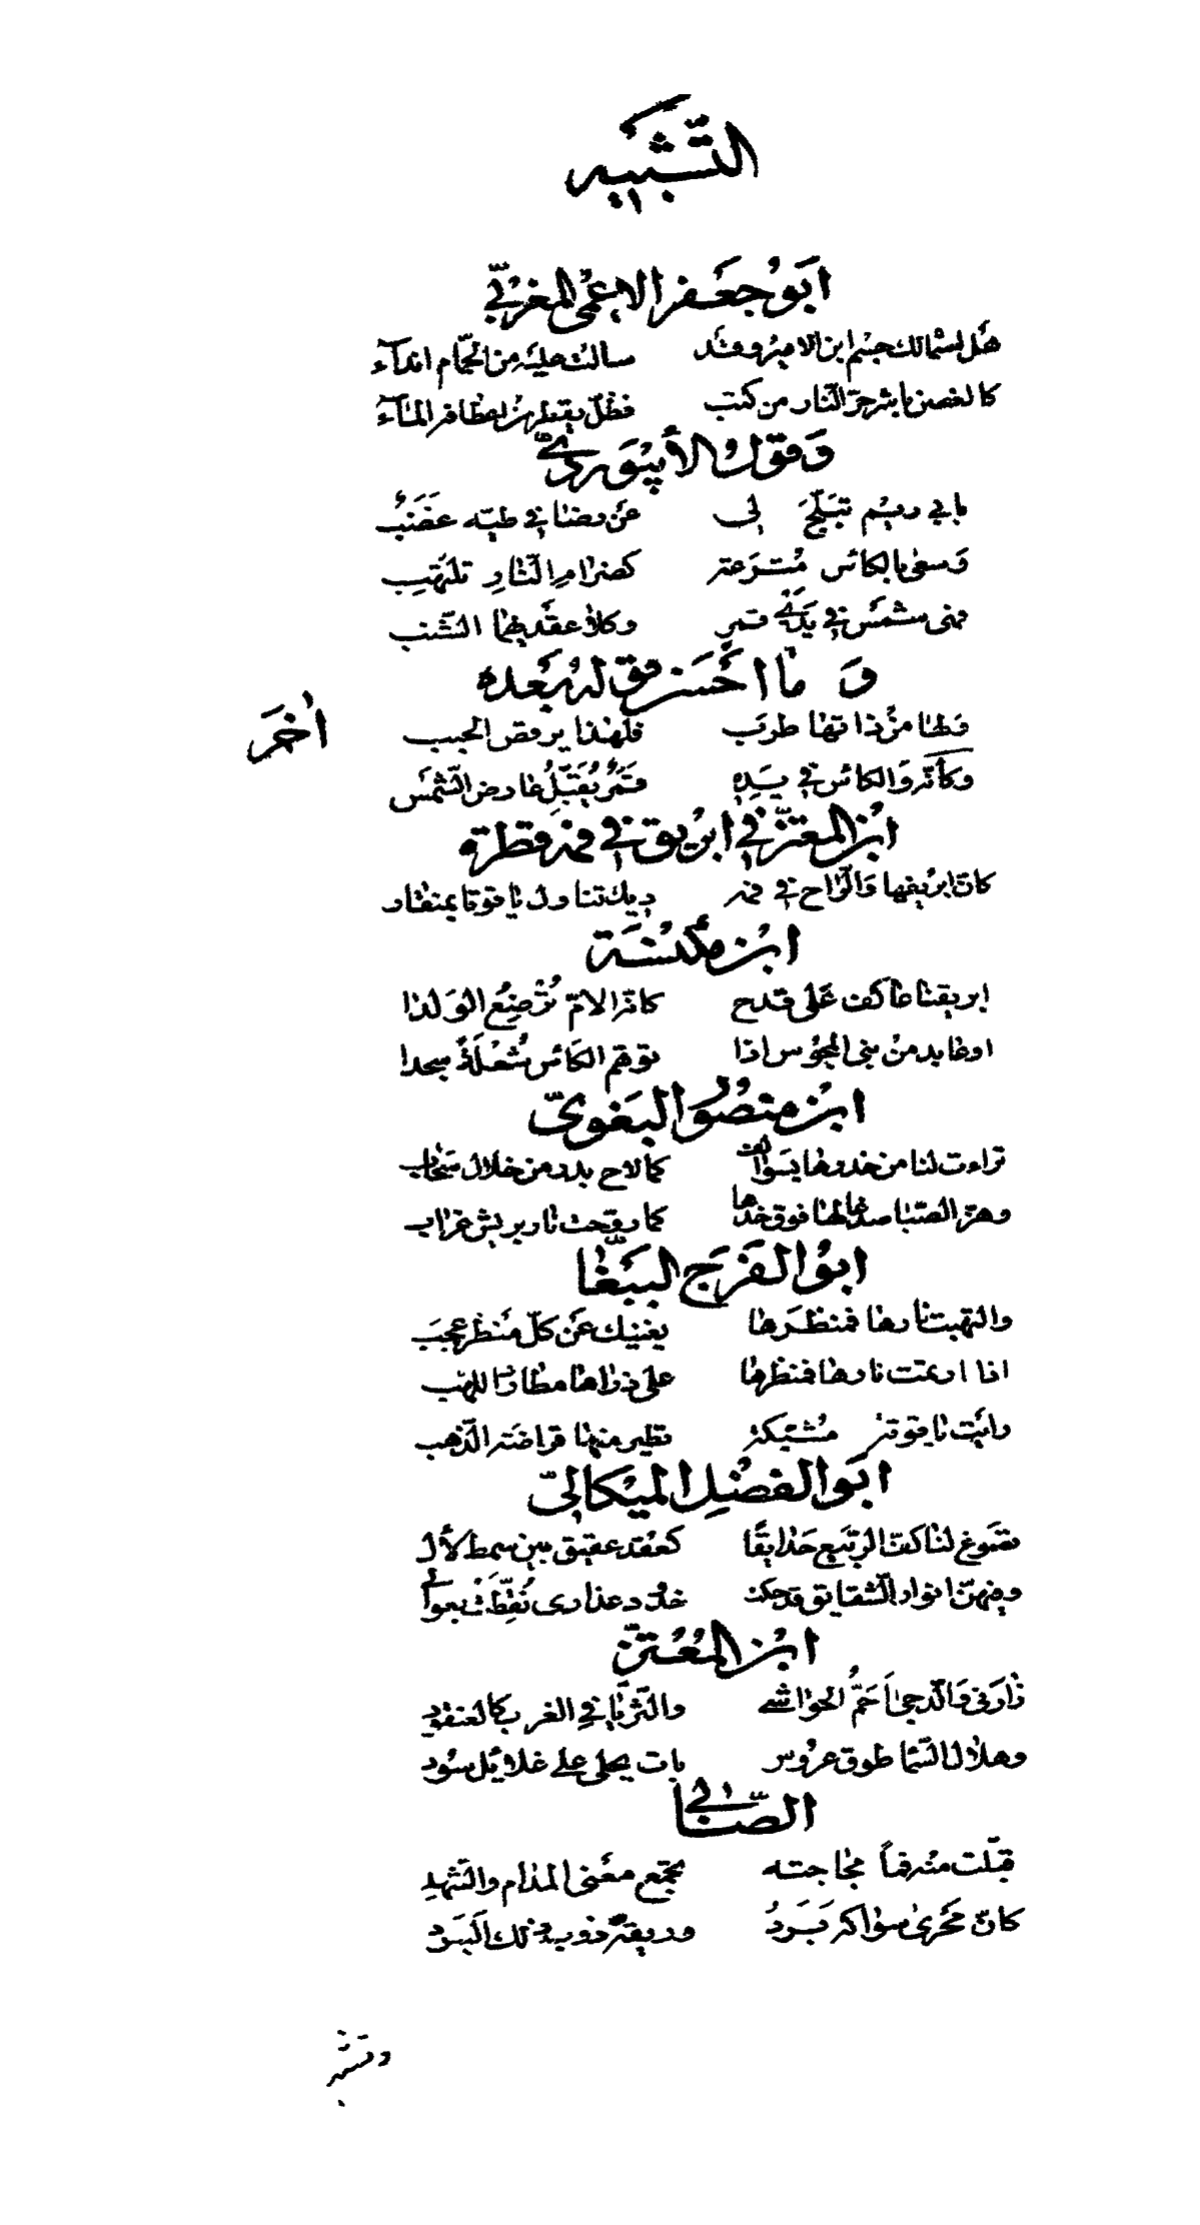 التشبيه
ابو جعفر الاعمى المغربي
هل استمالك جسم ابن الامير وقد سالت عليه من الحمام انداء
كالغصن باشر حر النار من كثب فظل يقطر من اعطافه الماء
وقول الأبيوردي
بابي ريم تبلج لي عن رضا في طيه غضب
وسعى بالكاس مترعة كضرام النار تلتهب
فهي شمس في يدي قمر وكلا عقديهما الشنب
و ما احسن قوله بعده
ولها من ذاتها طرب فلهذا يرقص الحبب
اخر
وكأنه والكاس في يده قمر يقبل عارض الشمس
ابن المعتز في ابريق في فمه قطرة
كان ابريقها والراح في فمه ديك تناول ياقوتا بمنقار
ابن مكنسة
ابريقنا عاكف على قدح كانه الام ترضع الولدا
او عابد من بني المجوس اذا توهم الكاس شعلة سجدا
ابن منصور البغوي
تراءت لنا من خدرها كما لاح بدر من خلال سحاب
وهز الصبا صدغا لها فوق خدها كما روحت نار بريش غراب
ابو الفرج الببغا
والتهبت نارها فمنظرها يغنيك عن كل منظر عجب
اذا ارتمت نارها فمنظرها على ذراها مطارد اللهب
رأيت ياقوتة مشبكة تطير منها قراضة الذهب
ابو الفضل الميكالي
تصوغ لنا كف الربيع حدايقا كعقد عقيق بين سمط لألى
وفيهن انوار الشقايق قد حكت خدود عذارى نقطت بغوالي
ابن المعتز
زارني والدجى احم الحواشي والثريا في الغرب كالعنقود
وهلال السما طوق عروس بات يجلى على غلائل سود
الصابي
قبلت منه فما مجاجته تجمع معنى المدام والشهد
كان مجرى سواكه برد وريقه ذوب ذلك البرد